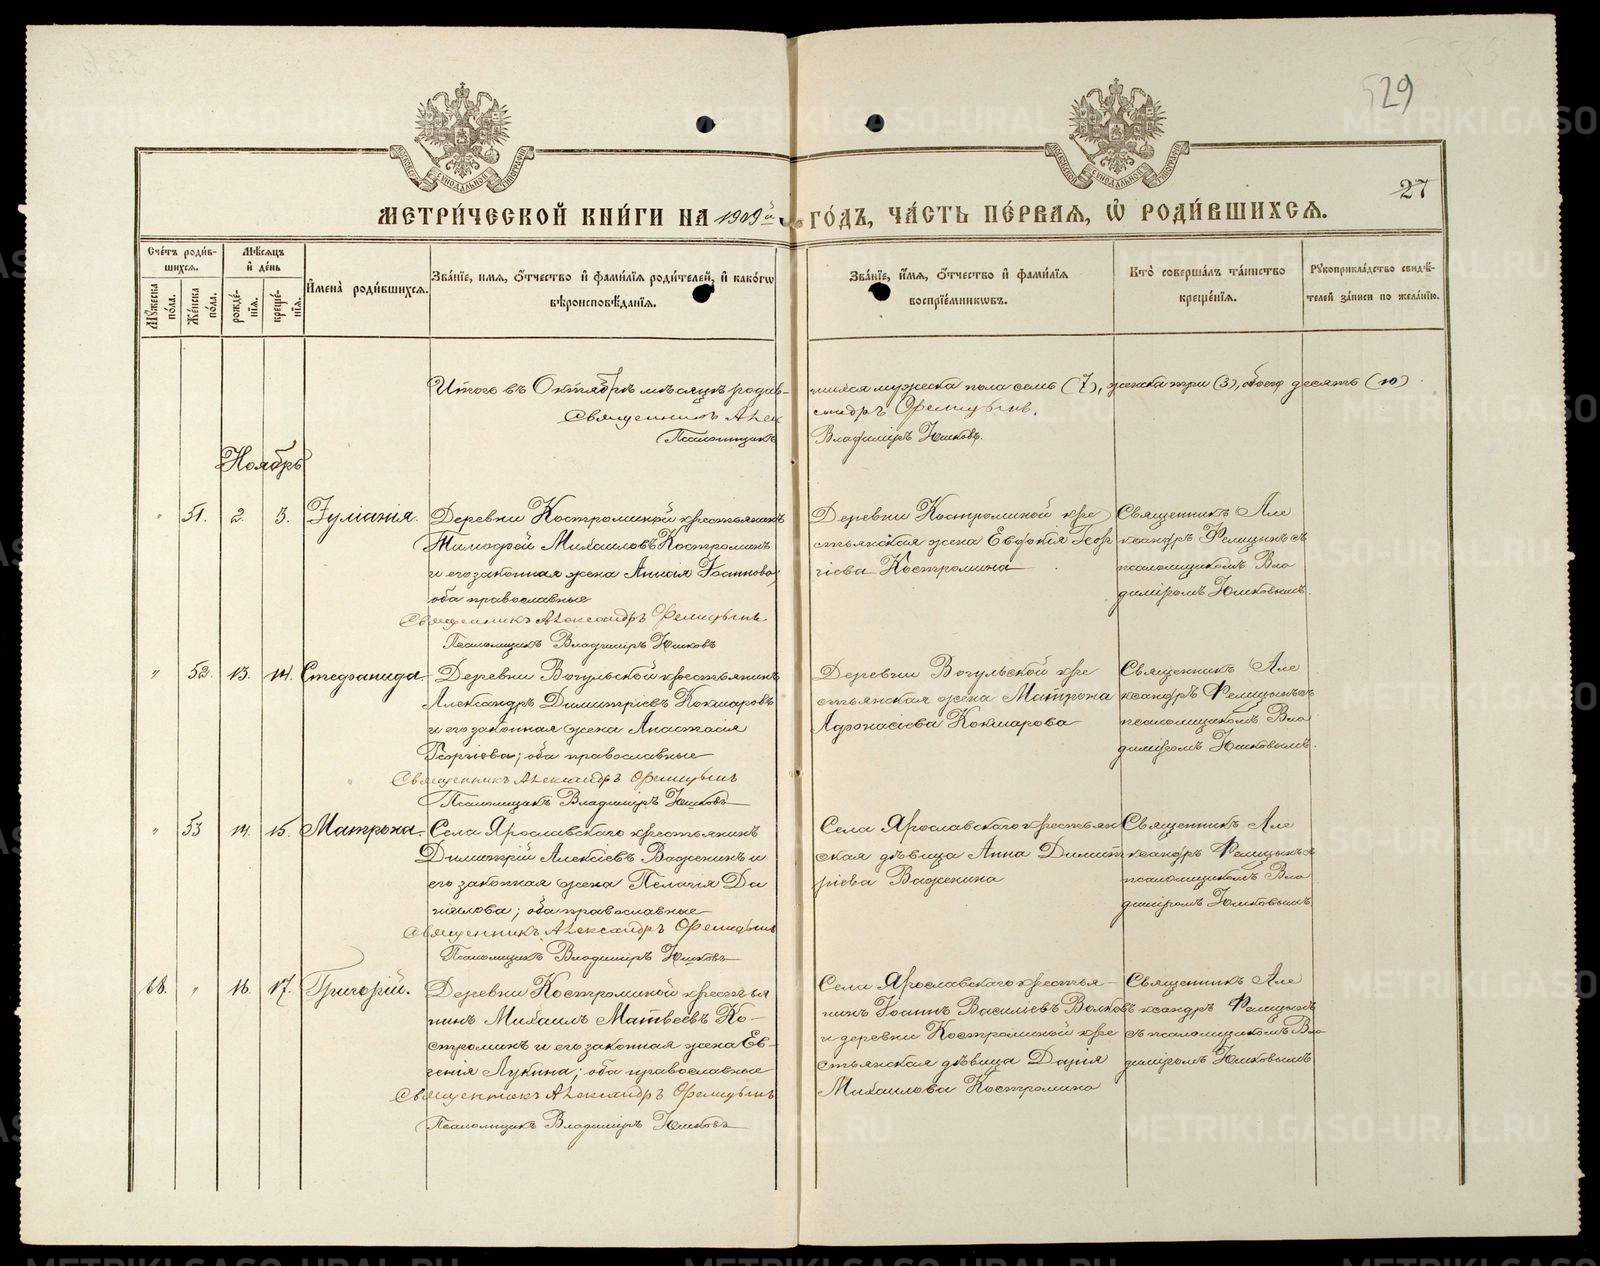 529
27
МОСКОВСКОЙ СѴНОДАЛЬНОЙ ТИПОГРАФІИ
МОСКОВСКОЙ СѴНОДАЛЬНОЙ ТИПОГРАФІИ
МЕТРИ́ЧЕСКОЙ КНИ́ГИ НА 1909й ГО́ДЪ, ЧА́СТЬ ПЕ́РВАЯ, Ѡ РОДИ́ВШИХСЯ.
Сче́тъ роди́вшихся.
Му́жеска по́ла.
Же́нска по́ла.
Мѣ́сяцъ и́ де́нь
рожде́нїя.
креще́нїя.
И҆мена̀ роди́вшихся.
Зва́нїе, и́мя, ѻ҆́тчество и҆ фами́лїя роди́телей, и҆ како́гѡ вѣроисповѣ́данїя.
Зва́нїе, и́мя, ѻ҆́тчество и҆ фами́лїя воспрїе́мникѡвъ.
Кто̀ соверша́лъ та́инство креще́нїя.
Рꙋкоприкла́дство свидѣ́телей за́писи по жела́нїю.
Итого въ Октябрѣ мѣсяцѣ родившихся мужеска пола семь (7), женска три (3), обоего десять (10)
Священникъ Александръ Фелицынъ.
Псаломщикъ Владиміръ Юшковъ.
Ноябрь
" 51. 2. 3. Іуліанія.
Деревни Костроминой крестьянинъ
Тимофей Михаиловъ Костроминъ
и его законная жена Анна Іоаннова
оба православные
Священникъ Александръ Фелицынъ
Псаломщикъ Владиміръ Юшковъ
Деревни Костроминой кре
стьянская жена Евфимія Геор
гіева Костромина
Священникъ Але
ксандръ Фелицынъ съ
псаломщикомъ Вла
диміромъ Юшковымъ.
" 52. 13. 14. Стефанида.
Деревни Вогульской крестьянинъ
Александръ Димитріевъ Кокшаровъ
и его законная жена Анастасія
Георгіева; оба православные
Священникъ Александръ Фелицынъ
Псаломщикъ Владиміръ Юшковъ
Деревни Вогульской кре
стьянская жена Матрона
Афонасіева Кокшарова
Священникъ Але
ксандръ Фелицынъ съ
псаломщикомъ Вла
диміромъ Юшковымъ.
" 53 14. 15. Матрона.
Села Ярославскаго крестьянинъ
Димитрій Алексіевъ Важенинъ и
его законная жена Пелагія Да
ніилова; оба православные
Священникъ Александръ Фелицынъ
Псаломщикъ Владиміръ Юшковъ
Села Ярославскаго крестьян
ская дѣвица Анна Димит
ріева Важенина
Священникъ Але
ксандръ Фелицынъ съ
псаломщикомъ Вла
диміромъ Юшковымъ.
68. " 16. 17. Григорій.
Деревни Костроминой крестья
нинъ Михаилъ Матвѣевъ Ко-
строминъ и его законная жена Ев-
генія Лукина; оба православные
Священникъ Александръ Фелицынъ
Псаломщикъ Владиміръ Юшковъ
Села Ярославскаго крестья-
нинъ Іоаннъ Василіевъ Волковъ
и деревни Костроминой кре
стьянская дѣвица Дарія
Михаилова Костромина
Священникъ Але
ксандръ Фелицынъ
съ псаломщикомъ Вла
диміромъ Юшковымъ
METRIKI.GASO-URAL.RU